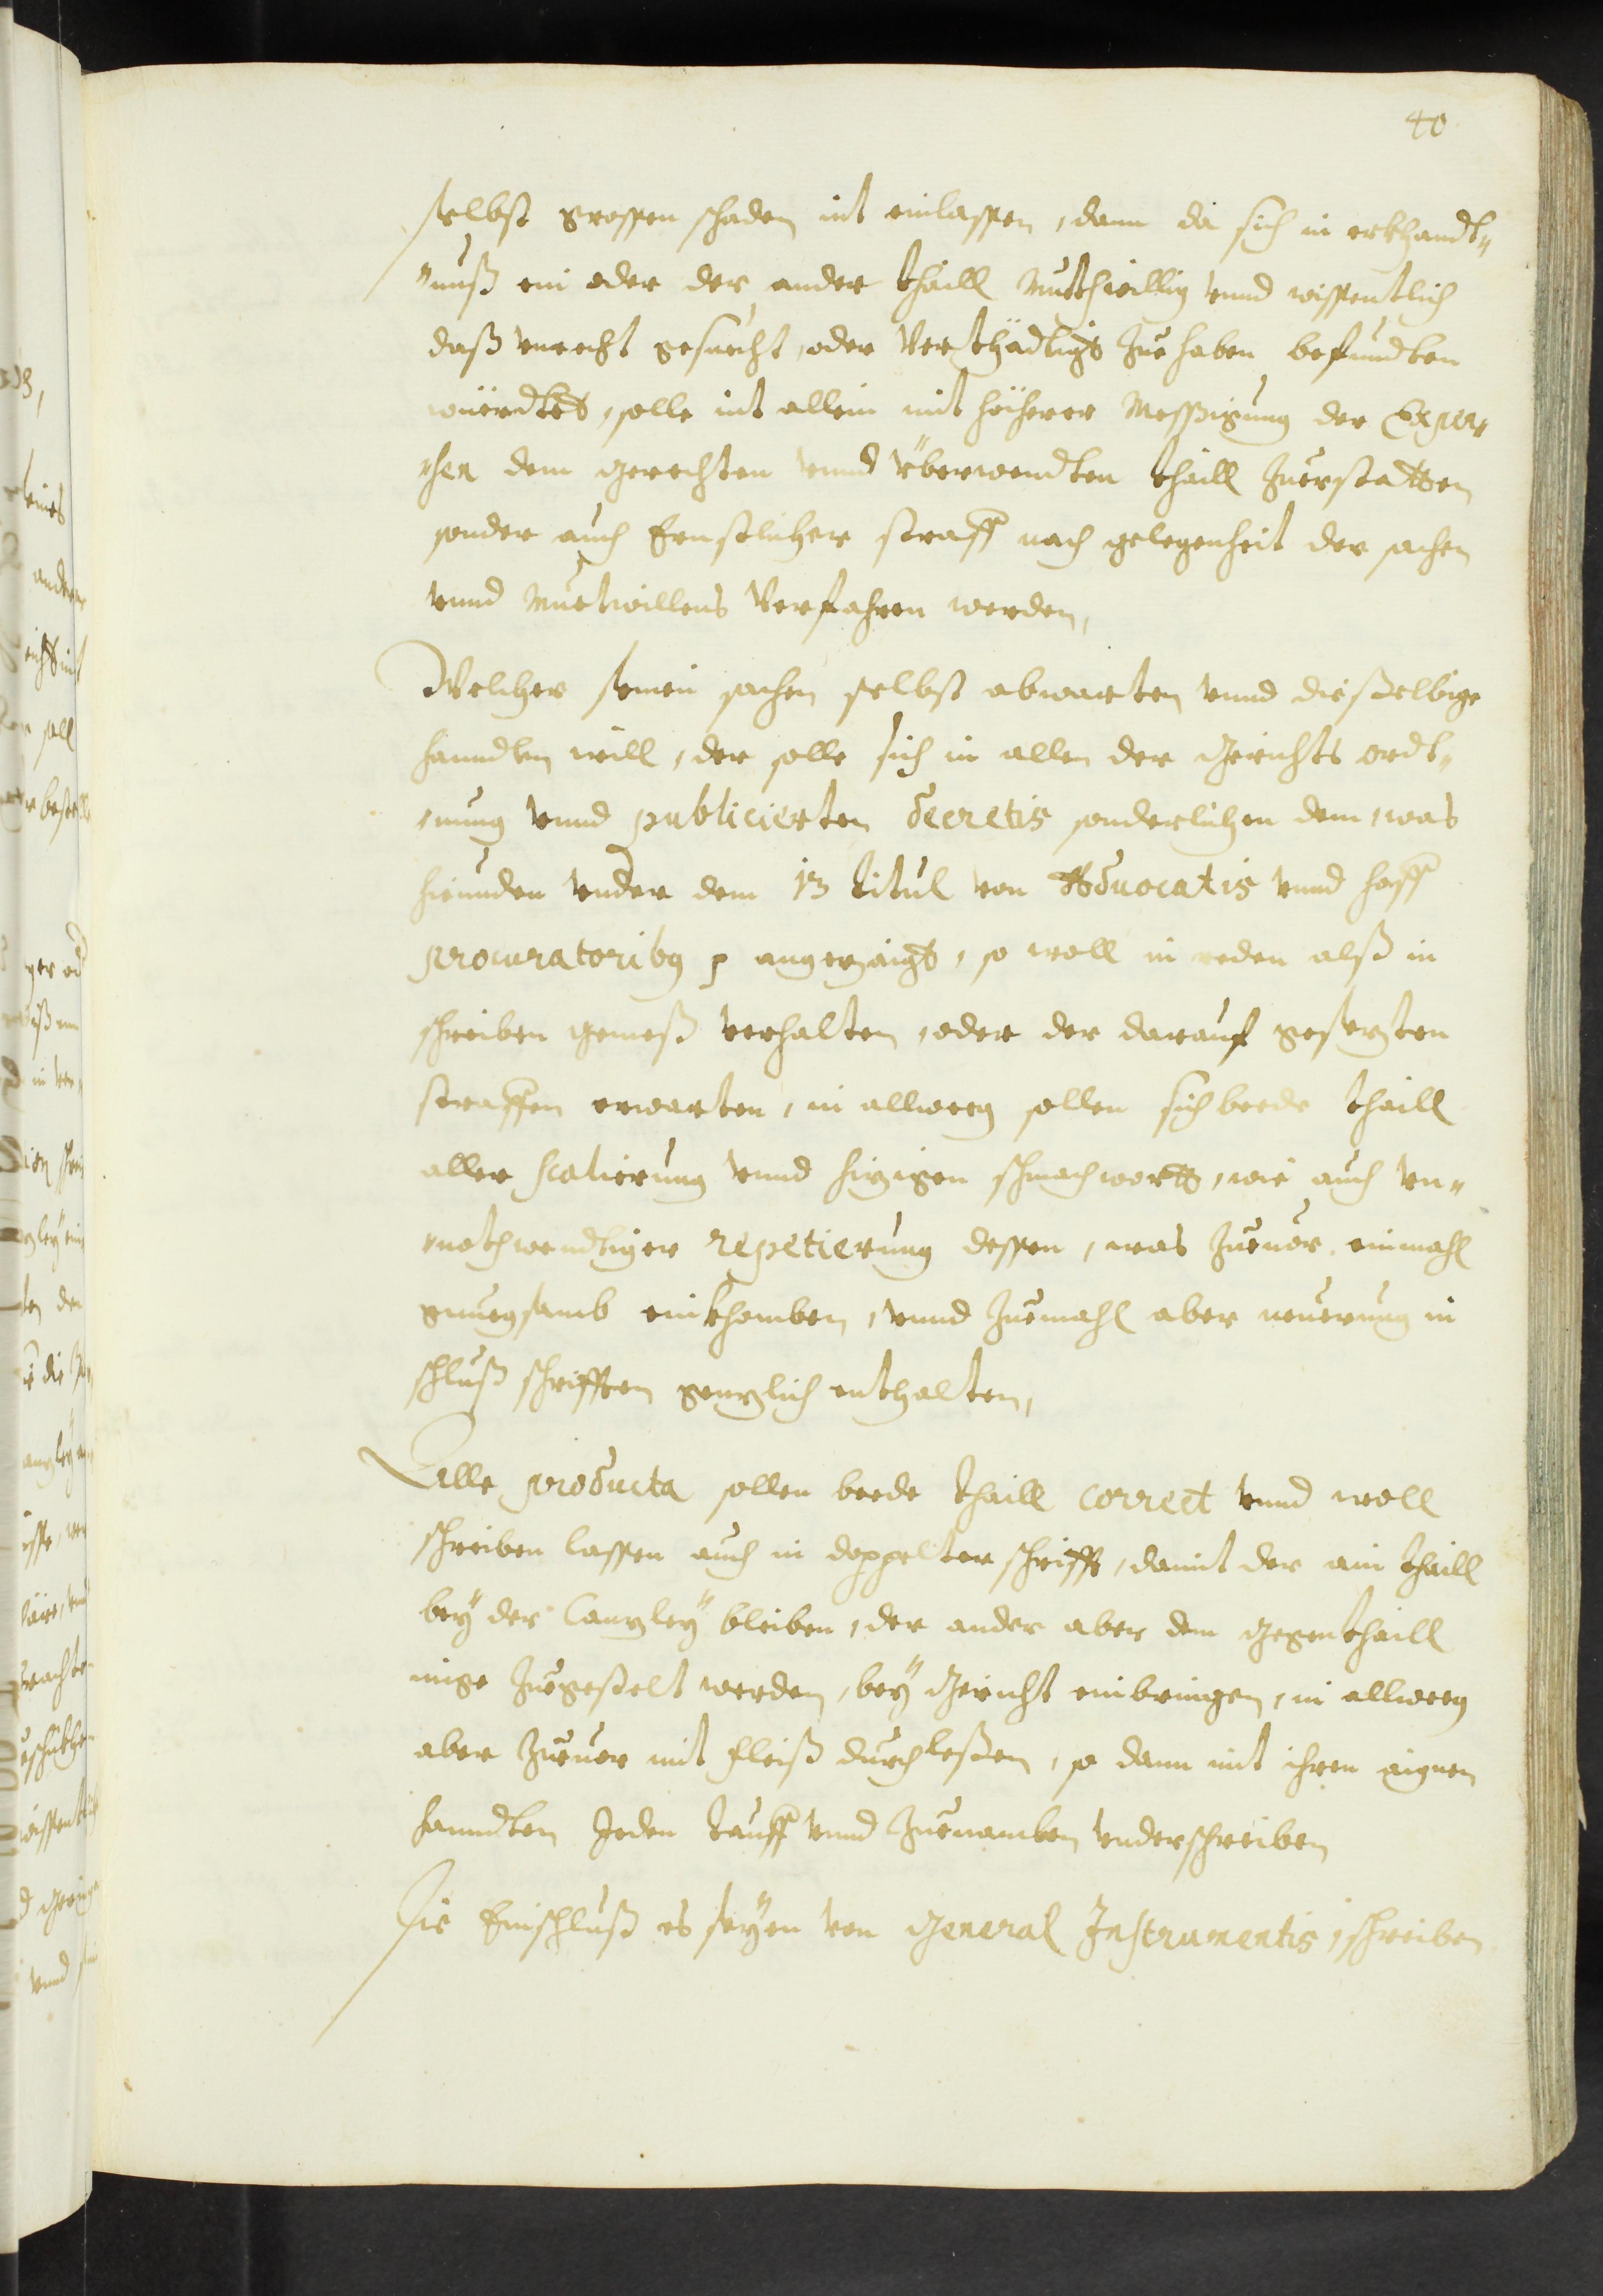 40
selbst grossen schaden nit einlassen, dann da sich in erkhandt„
„nuß ein oder der ander thaill Muthwillig vnnd wissentlich
daß vnrecht gesuecht, oder Verthädigt Zue haben befundten
wüerdtet, solle nit allein mit höherer Messigung der Expen„
„sen dem gerechten vnnd überwendten thaill Zuerstatten
sonder auch Ernstlicher straff nach gelegenheit der sachen
vnnd Muetwillens Verfahren werden,
Welcher seinen sachen selbst abwarten vnnd dieselbige
hanndlen will, der solle sich in allen der Gerichts ordt„
„nung vnnd publicierten decretis sonderlichen dem, was
hieunden vnder dem 13 titul von Aduocatis vnnd hoff
procuratoribus p angezaigt, so woll in reden alß in
schreiben gemeß verhalten, oder der darauf gesezten
straffen erwarten, in allweeg sollen sich beede thaill
aller scalierung vnnd hizigen schmachwortt, wie auch vn„
„nothwendtiger repetierung dessen, was Zueuor einmahl
gnuegsamb einkhomben, vnnd Zuemahl aber neuerung in
schluß schrifften genzlich enthalten,
Alle producta sollen beede thaill correct vnnd woll
schreiben lassen auch in doppelter schrifft, damit der ain thaill
bey der Canzley bleiben, der ander aber dem gegenthaill
müge Zuegestelt werden, bey Gericht einbringen, in allweeg
aber Zueuor mit fleiß durchleßen, so dann mit ihren aignen
hanndten Jeden tauff vnnd Zuenamben vnderschreiben
Die Einschluß es seyen von General Instrumentis, schreiben